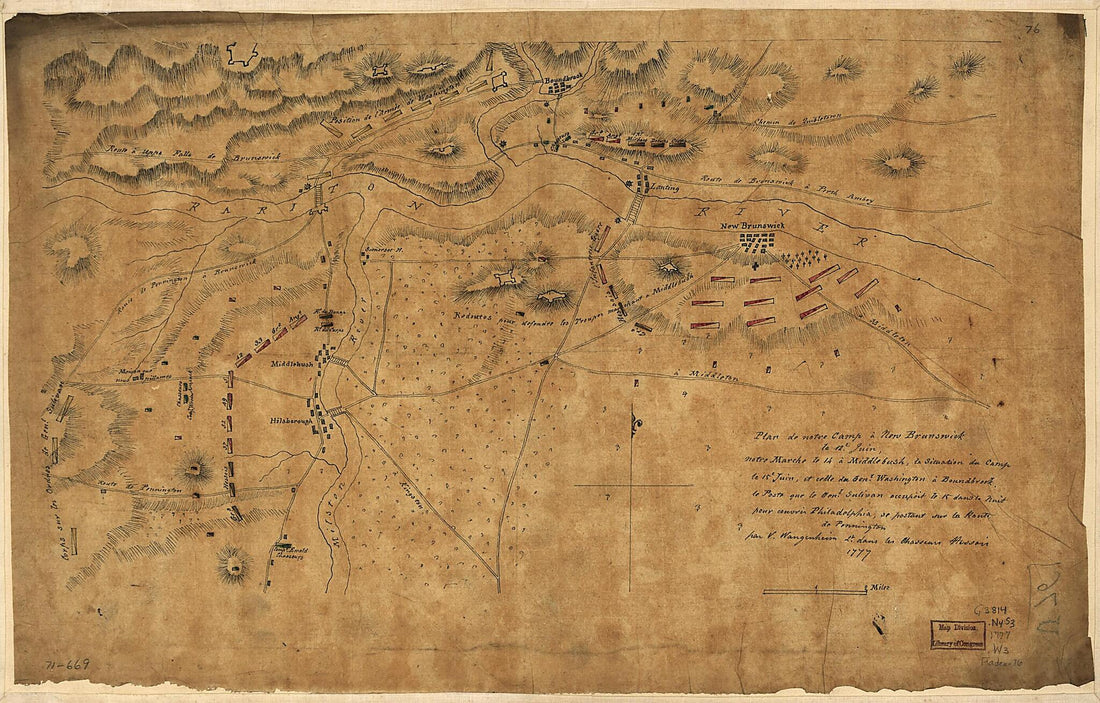 76
Boundbrook
Position de l'Armée de Washington
Chemen de Quibletown
Route à Upps Falls de Brunswick
Route de Brunswick à Perth Amboy
Lanting
RARITON RIVER
New Brunswick
Somerset H.
Route de Pennington à Brunswick
Redoutes pour défendre les Troupes
à Middlebush
River
Middlebush
Middleton
à Middleton
Hilsborough
Corps sous les Ordres de Genl. Sulivane
Route de Pennington
Kingston
Milston
Ewald
Chasseurs
Plan de notre Camp à New Brunswick
le 12t Juin,
notre Marche le 14 à Middlebush, la Situation du Camp
le 15t Juin, et celle du Genl. Washington à Boundbrook,
le Poste que le Genl. Sulivan occupoit le 15 dans la Nuit
pour couvrir Philadelphia, se postant sur la Route
de Pennington
par V. Wangenheim Lt. dans les Chasseurs Hessois
1777
1 Miles
G3814
.N4S3
1777
.W3
Map Division
Library of Congress
71-669